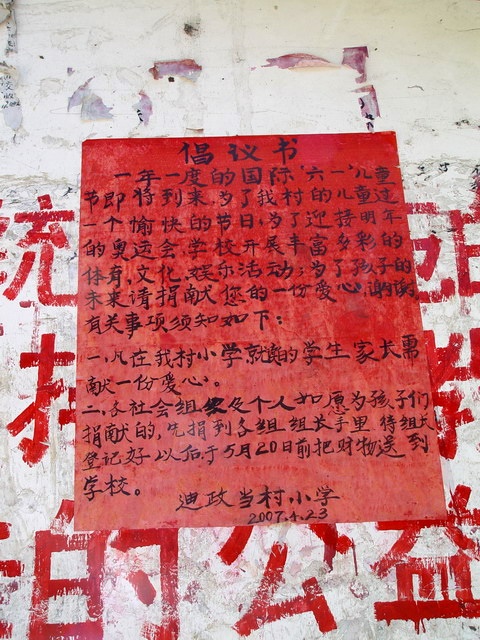 倡议书
一年一度的国际“六一”儿童
节即将到来,为了我村的儿童过
一个愉快的节日,为了迎接明年
的奥运会,学校开展丰富多彩的
体育,文化、娱乐活动;为了孩子的
未来请捐献您的一份爱心,谢谢
有关事项须知如下:
一、凡在我村小学就读的学生家长需
献一份爱心。
二、各社会组织及个人如愿为孩子们
捐献的,先捐到各组组长手里 待组长
登记好以后于5月20日前把财物送到
学校。
迪政当村小学
2007.4.23
统
扶
的公益